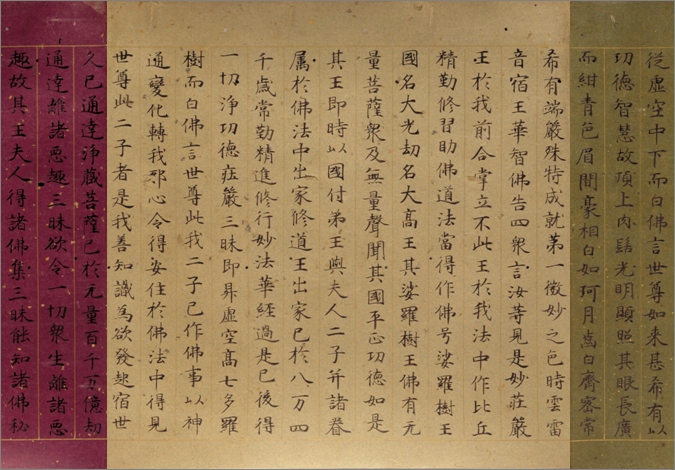 從虛空中下而白佛言世尊如來甚希有以
功德智慧故頂上肉髻光明顯照其眼長廣
而紺青色眉間豪相白如珂月齒白齊密常
希有端嚴殊特成就第一微妙之色時雲雷
音宿王華智佛告四衆言汝等見是妙莊嚴
王於我前合掌立不此王於我法中作比丘
精勤修習助佛道法當得作佛号娑羅樹王
國名大光劫名大高王其娑羅樹王佛有无
量菩薩衆及無量聲聞其國平正功德如是
其王即時以國付弟王與夫人二子并諸眷
属於佛法中出家修道王出家已於八万四
千歲常勤精進修行妙法華經過是已後得
一切淨功德莊嚴三昧即昇虛空高七多羅
樹而白佛言世尊此我二子已作佛事以神
通變化轉我邪心令得安住於佛法中得見
世尊此二子者是我善知識為欲發起宿世
久已通達淨藏菩薩已於无量百千万億劫
通達離諸惡趣三昧欲令一切衆生離諸惡
趣故其王夫人得諸佛集三昧能知諸佛秘